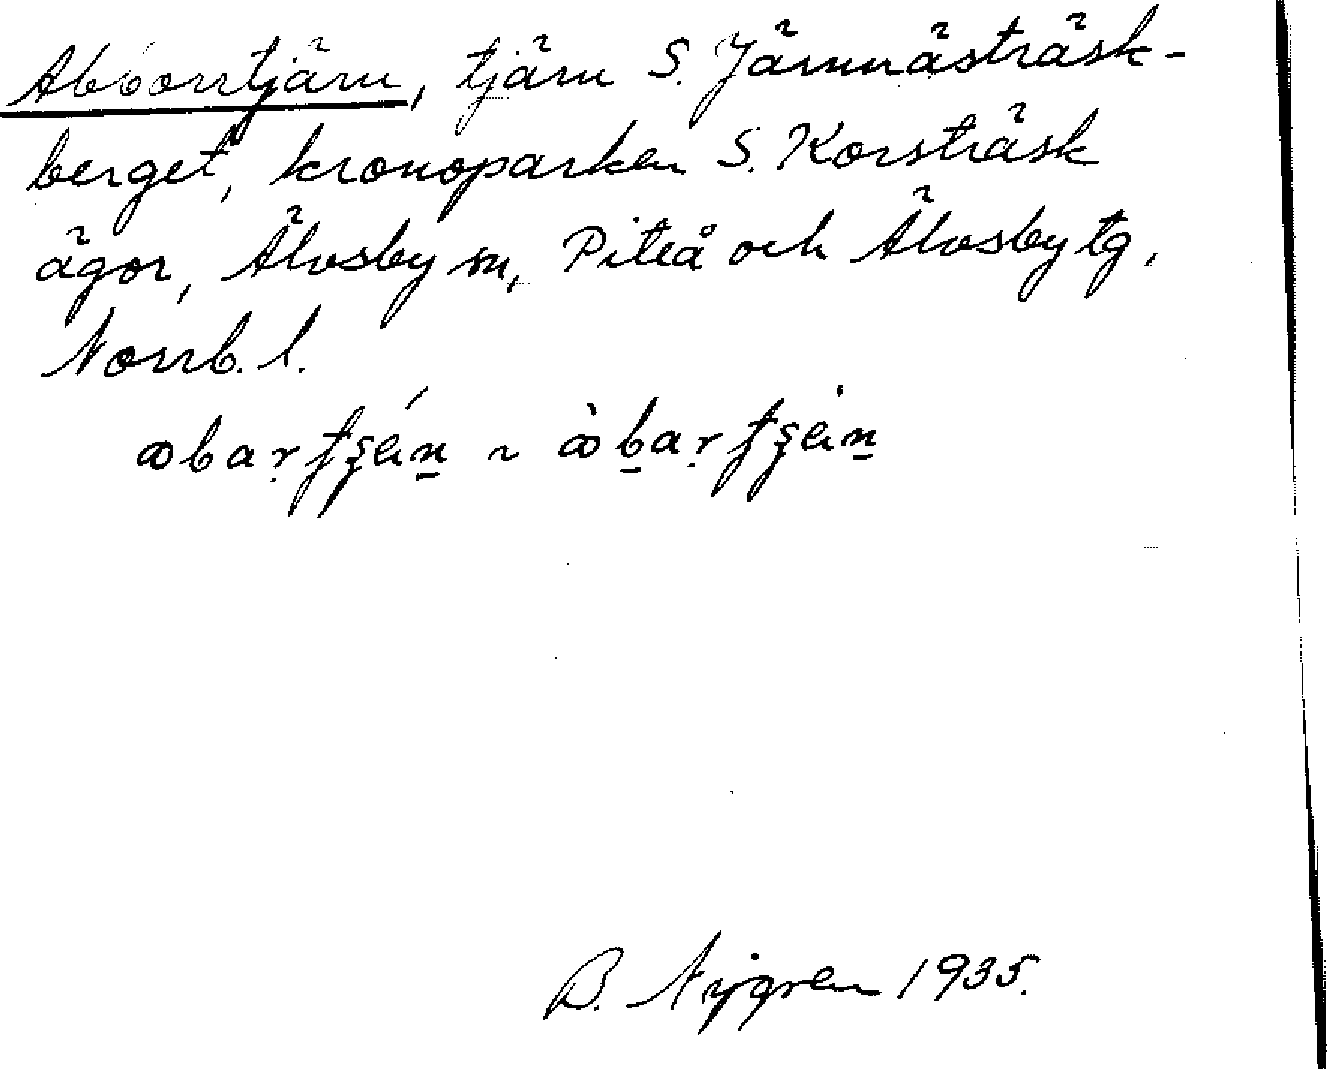 Abborrtjärn, tjärn S. Järnnästräsk-
berget, kronoparken S. Korsträsk
ägor, Älvsby sn, Piteå och Älvsby tg,
Norrb. l.
B. Nygren 1935.